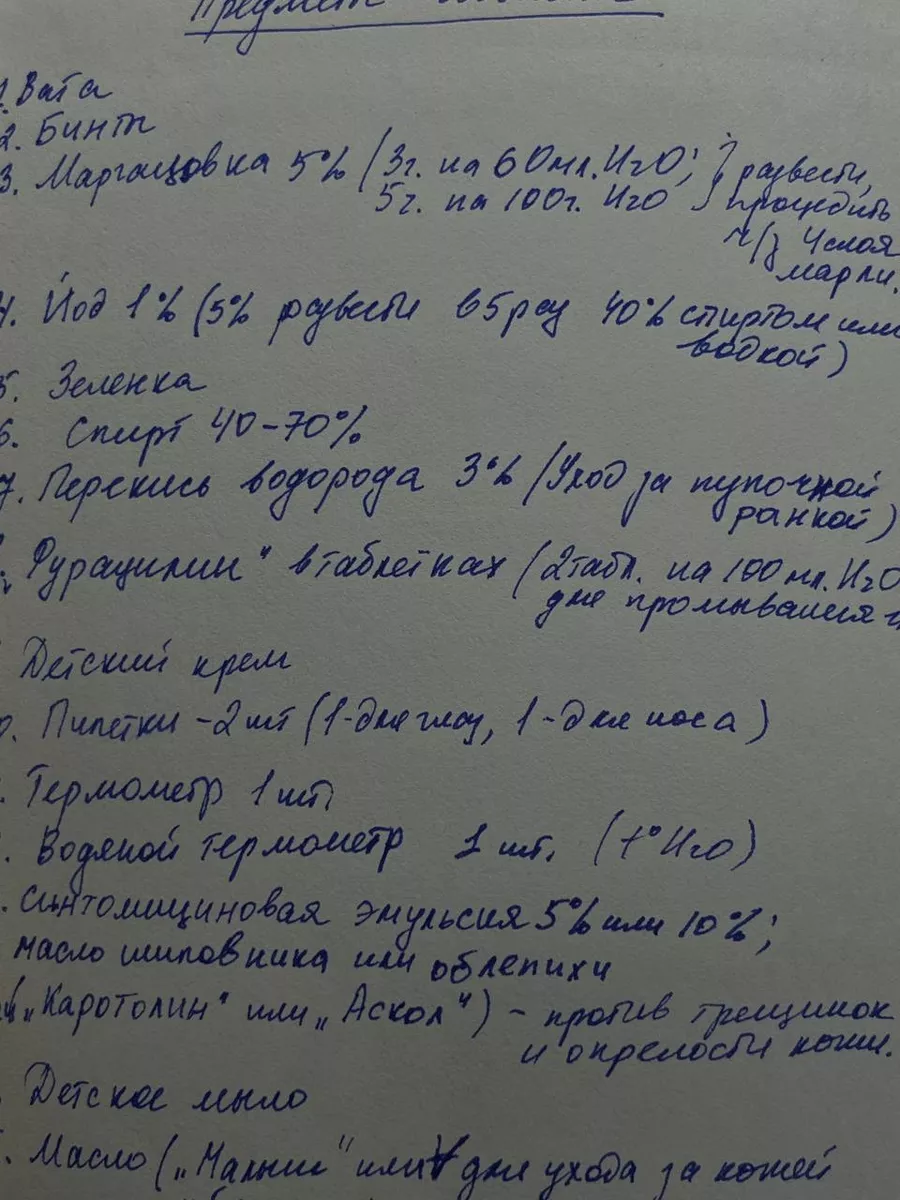 Предметы
1. Вата
2. Бинты
3. Марганцовка 5% (3г. на 60мл. H2O;
5г. на 100г. H2O } развести,
процедить
ч/з 4 слоя
марли.
4. Йод 1% (5% развести в 5 раз 40% спиртом или
водкой)
5. Зеленка
6. Спирт 40-70%
7. Перекись водорода 3% (Уход за пупочной
ранкой)
Фурацилин" в таблетках (2 табл. на 100 мл. H2O
для промывания
Детский крем
Пипетки - 2 шт (1-для глаз, 1-для носа)
Термометр 1 шт.
Водяной термометр 1 шт. (t° H2O)
Синтомициновая эмульсия 5% или 10%;
масло шиповника или облепихи
„Каротолин" или „Аскол") - против трещинок
и опрелости кожи.
Детское мыло
Масло („Малыш" или для ухода за кожей